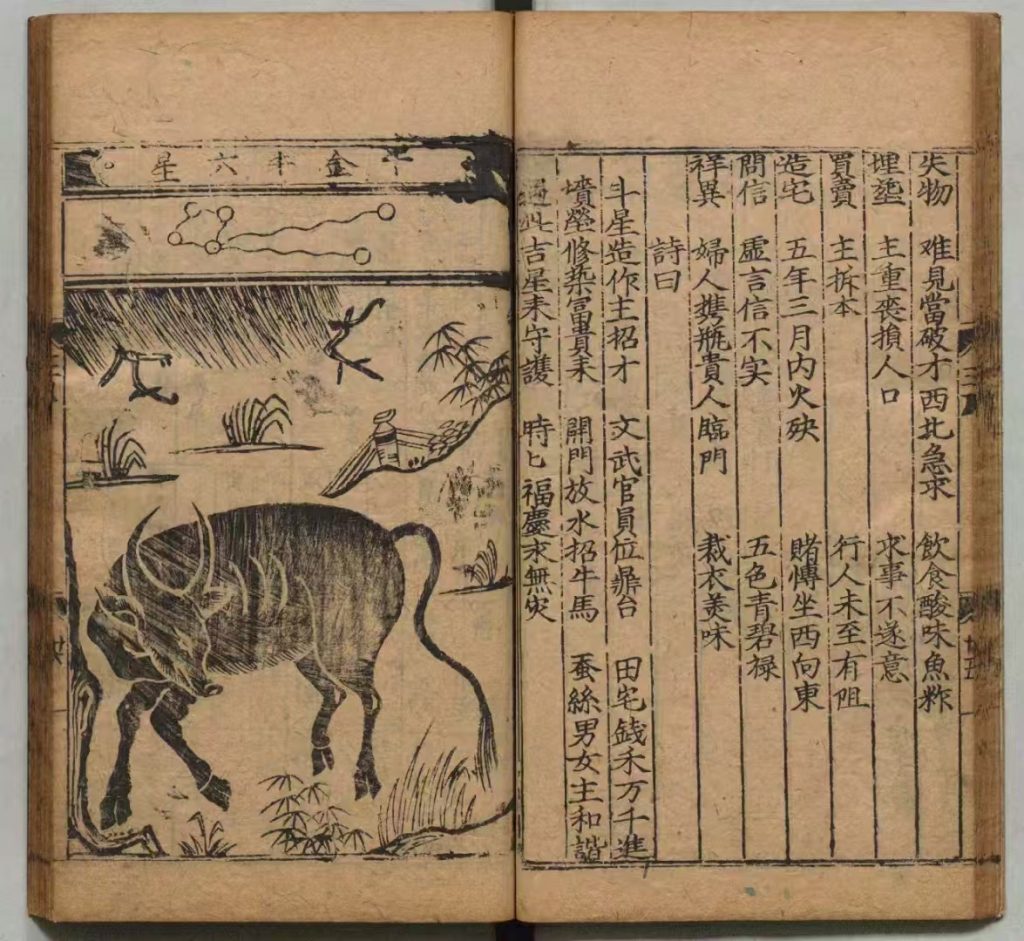 失物 难見當破才西北急求 飲食酸味魚
埋塟 主重喪損人口 求事不遂意
買賣 主拆本 行人未至有阻
造宅 五年三月内火殃 賭慱坐西向東
問信 虚言信不实 五色青碧禄
祥異 婦人携瓶貴人臨門 裁衣美味
詩曰
斗星造作主招才 文武官員位鼎台 田宅銭禾万千進
墳塋修築富貴来 開門放水招牛馬 蚕絲男女主和諧
遇此吉星来守護 時匕福慶永無灾
牛金牛六星